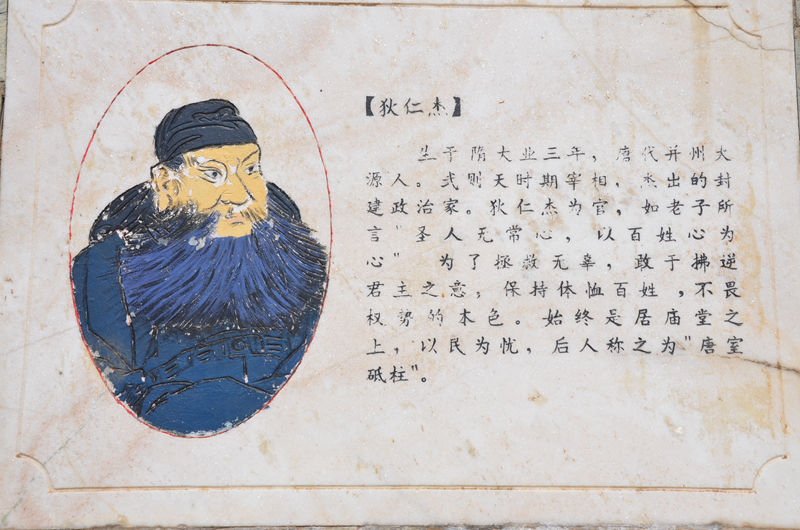 【狄仁杰】
生于隋大业三年，唐代并州太
源人。武则天时期宰相，杰出的封
建政治家。狄仁杰为官，如老子所
言"圣人无常心，以百姓心为
心" 为了拯救无辜，敢于拂逆
君主之意，保持体恤百姓，不畏
权势的本色。始终是居庙堂之
上，以民为忧，后人称之为"唐室
砥柱"。